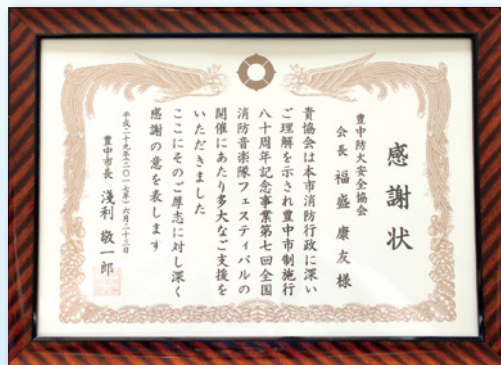 感謝状
豊中防火安全協会
会長 福盛康友様
貴協会は本市消防行政に深い
ご理解を示され豊中市制施行
八十周年記念事業第七回全国
消防音楽隊フェスティバルの
開催にあたり多大なご支援を
いただきました
ここにそのご厚志に対し深く
感謝の意を表します
平成二十九年(二〇一七年)六月二十三日
豊中市長 淺利敬一郎